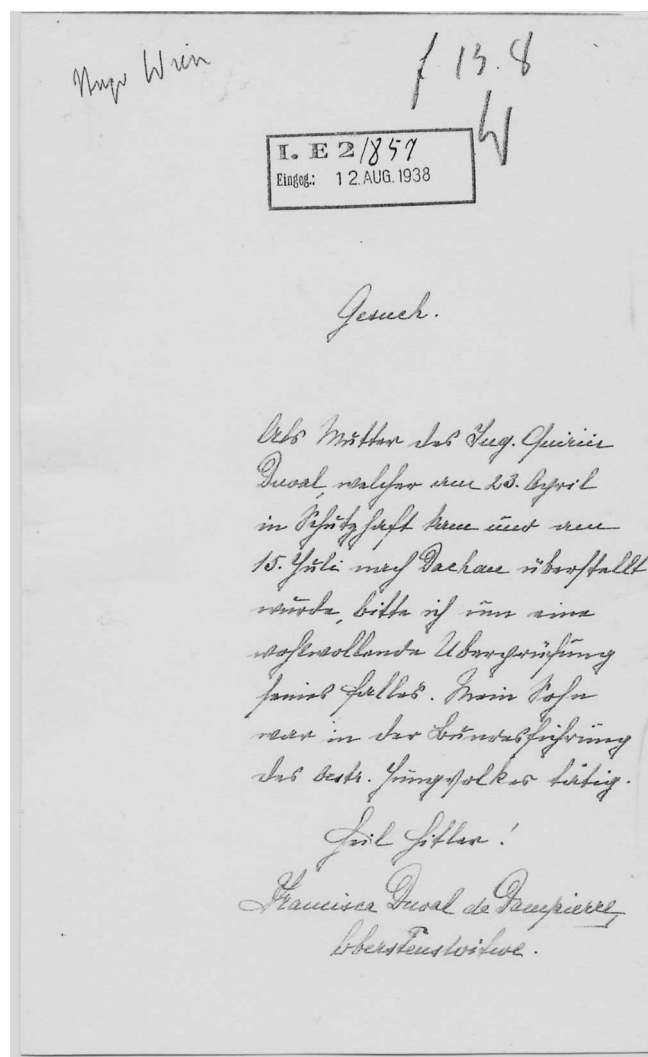 Wien
f 13.8
I. E 2/857
Eingeg.: 12. AUG. 1938
Gesuch.
Als Mutter des Ing. Quirin
Duval, welcher am 23. April
in Schutzhaft kam und am
15. Juli nach Dachau überstellt
wurde, bitte ich um eine
wohlwollende Überprüfung
seines Falles. Mein Sohn
war in der Bundesführung
des Oestr. Jungvolkes tätig.
Heil Hitler!
Francisca Duval de Dampierre,
Oberstenswitwe.